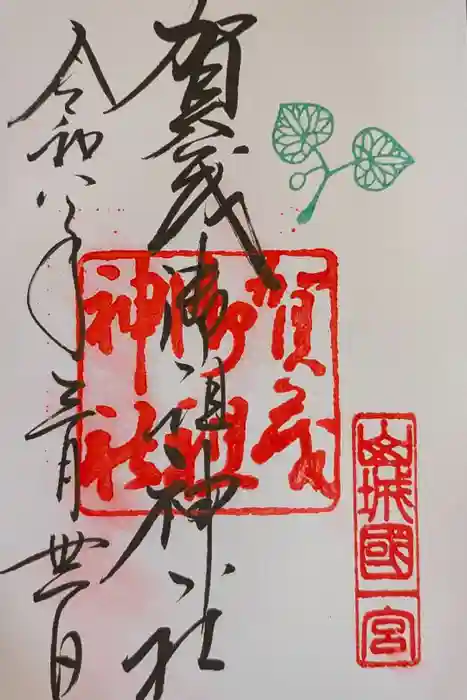 山城國一宮
賀茂御祖神社
賀茂
御祖
神社
令和八年三月卅一日